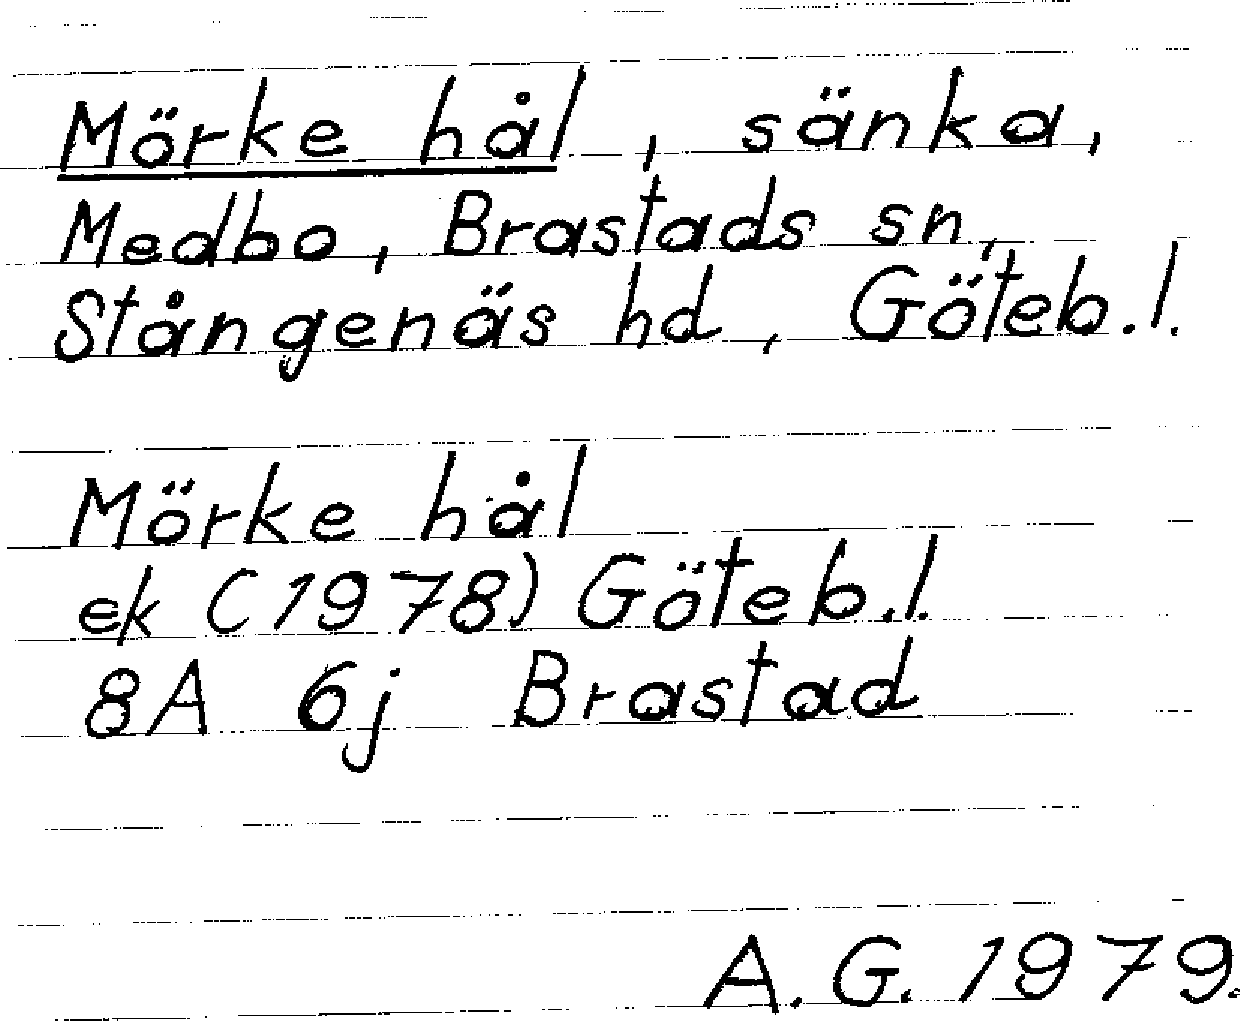 Mörke hål, sänka,
Medbo, Brastads sn,
Stångenäs hd, Göteb.l.
Mörke hål
ek (1978) Göteb.l.
8A 6j Brastad
A.G. 1979.